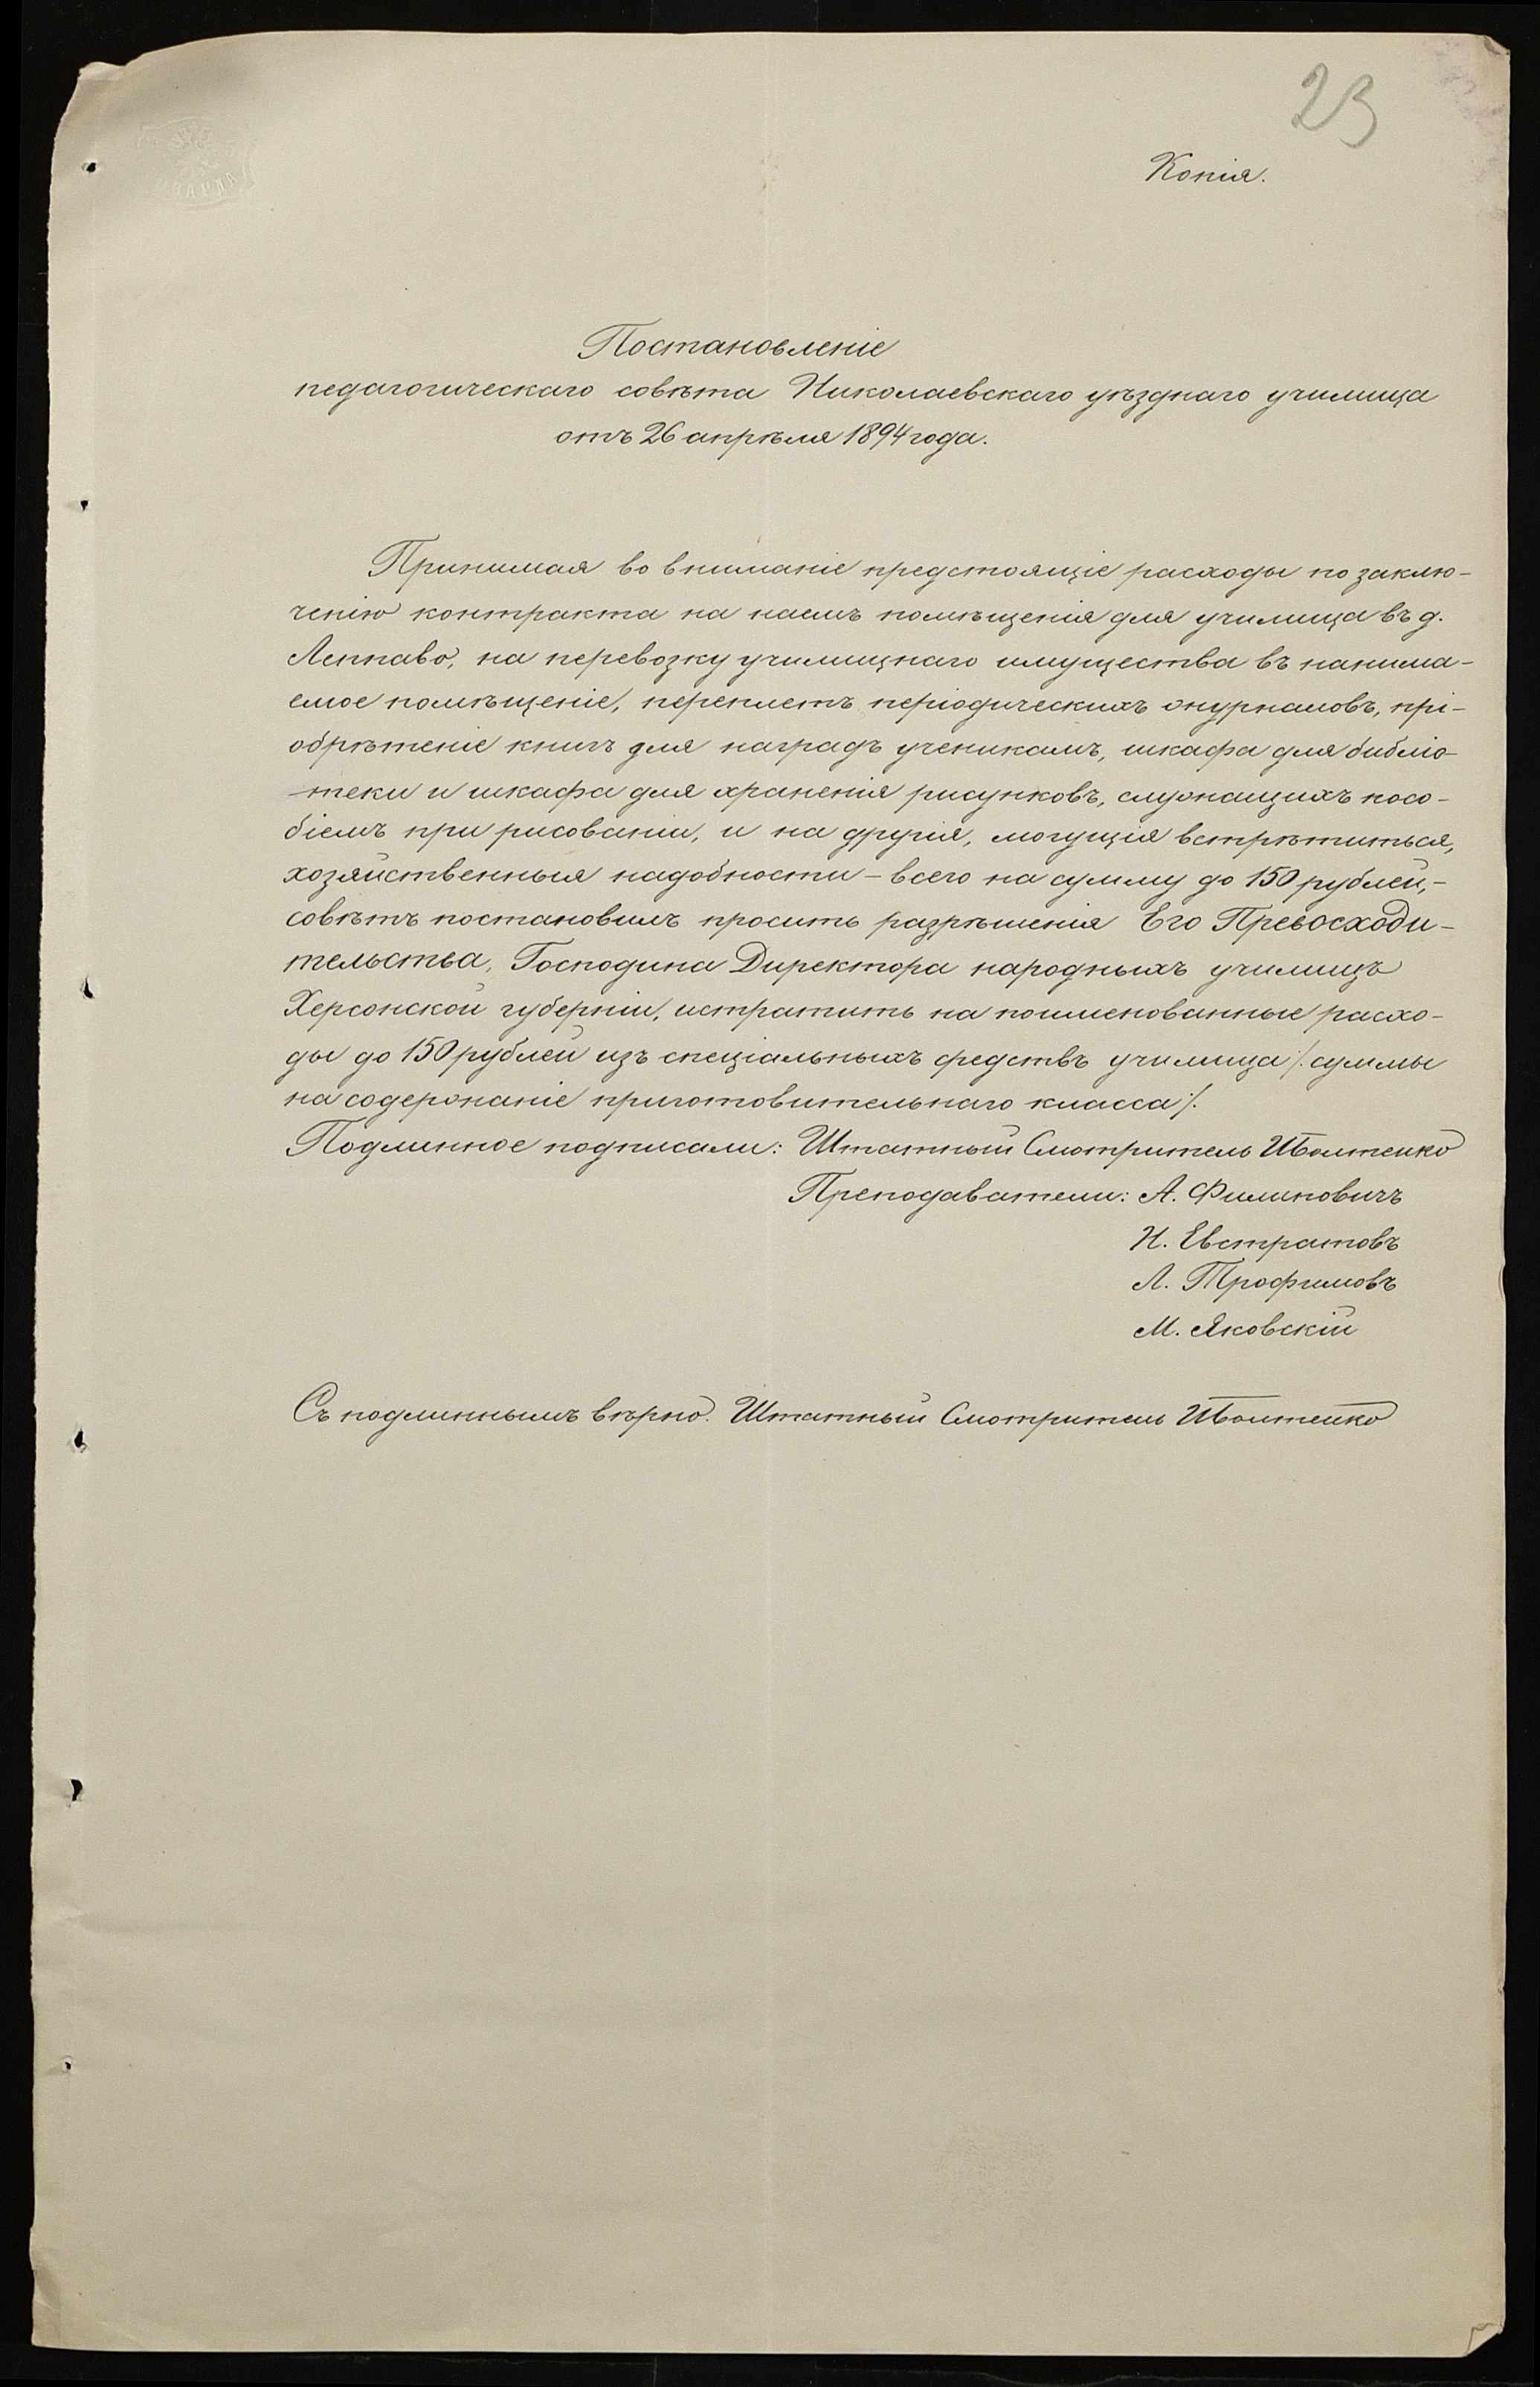 23
Копія.
Постановленіе
педагогическаго совѣта Николаевскаго уѣзднаго училища
отъ 26 апрѣля 1894 года.
Принимая во вниманіе предстоящіе расходы по заклю-
ченію контракта на наемъ помѣщенія для училища въ д.
Леппаво, на перевозку училищнаго имущества въ нанима-
емое помѣщеніе, переплетъ періодическихъ журналовъ, прі-
обрѣтеніе книгъ для наградъ ученикамъ, шкафа для библіо-
теки и шкафа для храненія рисунковъ, служащихъ посо-
біемъ при рисованіи, и на другія, могущія встрѣтиться,
хозяйственныя надобности – всего на сумму до 150 рублей, –
совѣтъ постановилъ просить разрѣшенія Его Превосходи-
тельства, Господина Директора народныхъ училищъ
Херсонской губерніи, истратить на поименованные расхо-
ды до 150 рублей изъ спеціальныхъ средствъ училища /. суммы
на содержаніе приготовительнаго класса /.
Подлинное подписали: Штатный Смотритель И Болтенко
Преподаватели: А. Филиповичъ
Н. Евстратовъ
Л. Трофимовъ
М. Яковскій
Съ подлиннымъ вѣрно. Штатный Смотритель И Болтенко